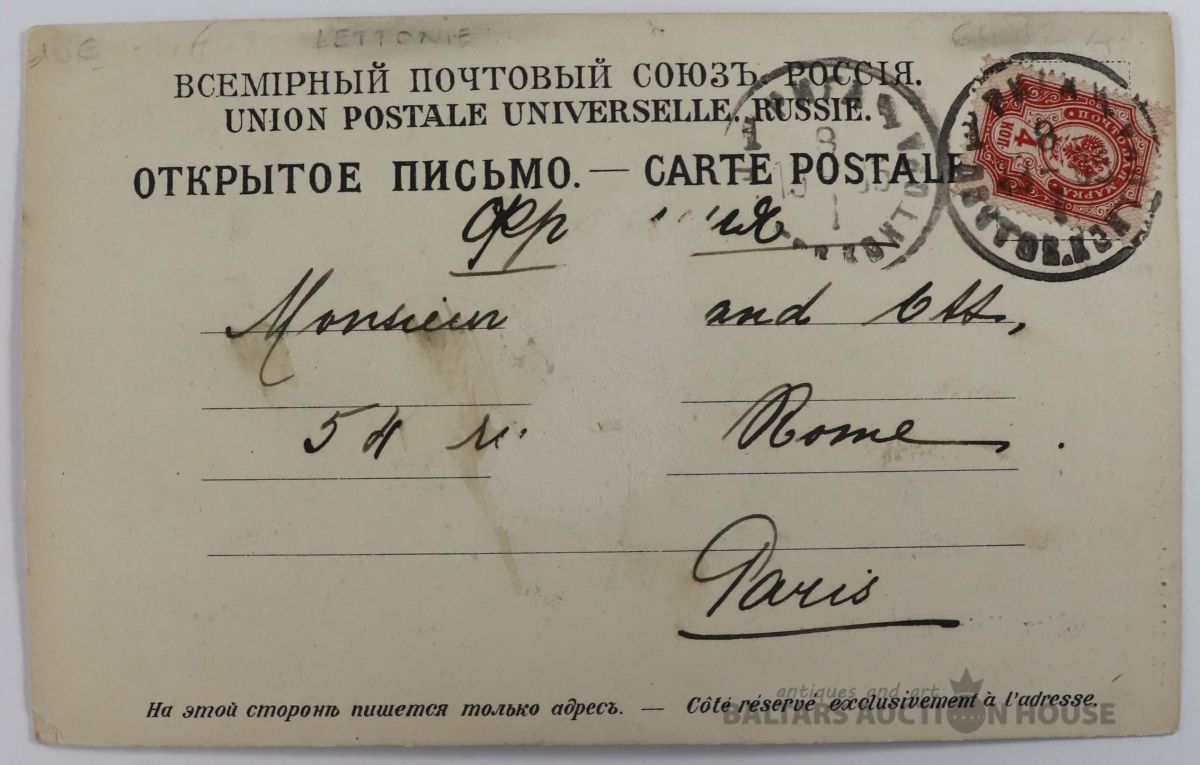 LETTONIE
ВСЕМІРНЫЙ ПОЧТОВЫЙ СОЮЗЪ. РОССІЯ.
UNION POSTALE UNIVERSELLE. RUSSIE.
ОТКРЫТОЕ ПИСЬМО. — CARTE POSTALE
4
МАРКА
Фр
Monsieur and Ott,
54 Rome
Paris
На этой сторонѣ пишется только адресъ. — Côté réservé exclusivement à l'adresse.
antiques and art
BALTARS AUCTION HOUSE